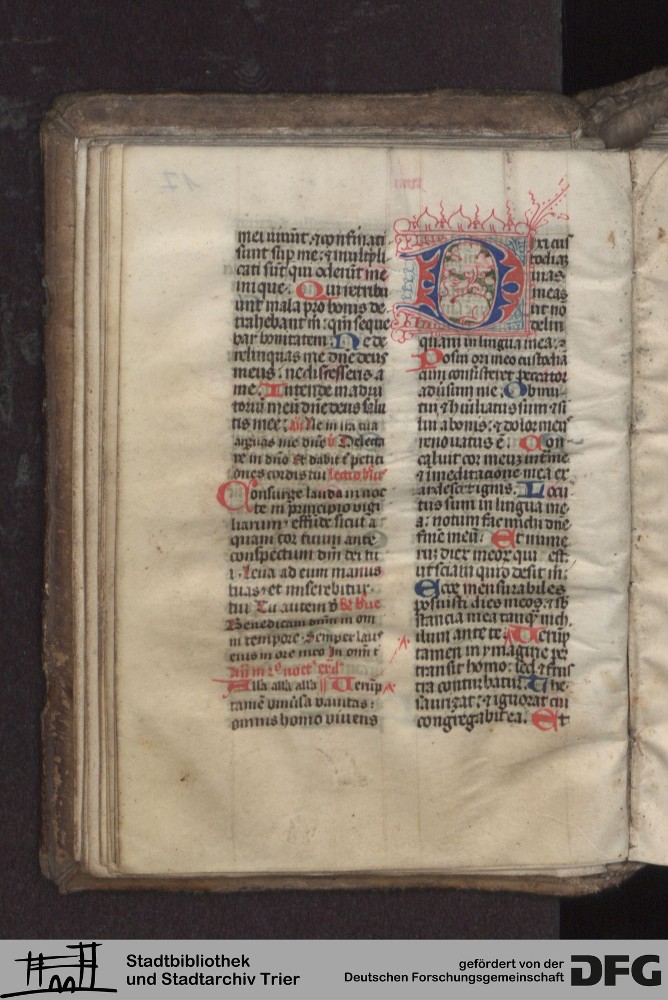 mei uiuūt· ⁊ confirmati
sunt sup me: ⁊ multipli
cati sūt qui oderūt me
inique· Qui retribu
unt mala pro bonis de
trahebant m̄: qm̄ seque
bar bonitatem Ne de
relinquas me dn̄e deus
meus· ne discesseris a
me· Intende in adiu
toriū meū dn̄e deus salu
tis mee· Ne in ira tua
arguas me dn̄e Delecta
re in dn̄o Et dabit t̄ petici
ones cordis tui
Consurge lauda in noc
te in principio uigi
liarum effūde sicut a
quam cor tuum ante
conspectum dn̄i dei tu
i· Leua ad eum manus
tuas et miserebitur
tui Tu autem
Benedicam dn̄m in om
ni tempore· Semper laus
eius in ore meo
Alla alla alla Uerūp
tamē uniūsa uanitas:
omnis homo uiuens
Dixi cus
todiam
uias
meas
ut nō
delin
quam in lingua mea:
Posui ori meo custodiā
cum consisteret peccator
adūsum me· Obmu
tui ⁊ huiliatus sum ⁊ si
lui a bonis: ⁊ dolor meus
renouatus ē· Con
caluit cor meuȝ int̄ me
⁊ in meditacione mea ex
ardescet ignis· Locu
tus sum in lingua me
a: notum fac michi dn̄e
finē meū· Et nume
rū dierȝ meoȝ qui est:
ut sciam quid desit m̄:
Ecce mensurabiles
posuisti dies meos· ⁊ sb
stancia mea tanqȝ nich
ilum ante te Uerūp
tamen in ymagine per
transit homo: sed ⁊ frus
tra conturbatur The
saurizat: ⁊ ignorat cui
congregabit ea· Et
Stadtbibliothek
und Stadtarchiv Trier
gefördert von der
Deutschen Forschungsgemeinschaft
DFG